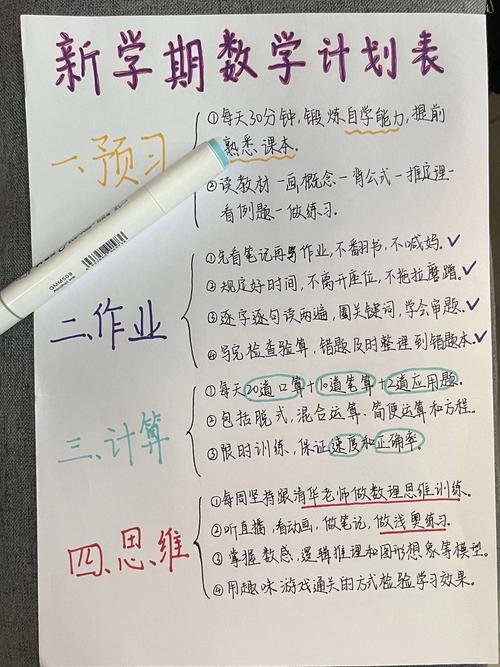 新学期数学计划表
一、预习
①每天30分钟,锻炼自学能力,提前
熟悉课本.
②读教材一画概念一背公式一推定理一
看例题一做练习.
二、作业
①先看笔记再写作业,不翻书,不喊妈.✓
②规定好时间,不离开座位,不拖拉磨蹭.✓
③逐字逐句读两遍,圈关键词,学会审题.✓
④写完检查验算,错题及时整理到错题本.✓
三、计算
①每天20道口算+10道笔算+2道应用题.
②包括脱式,混合运算.简便运算和方程.
③限时训练,保证速度和正确率.
四、思维
①每周坚持跟清华老师做数理思维训练.
②听直播,看动画,做笔记,做浅奥练习.
③掌握数感,逻辑推理和图形想象等模型.
④用趣味游戏通关的方式检验学习效果.
GMM509